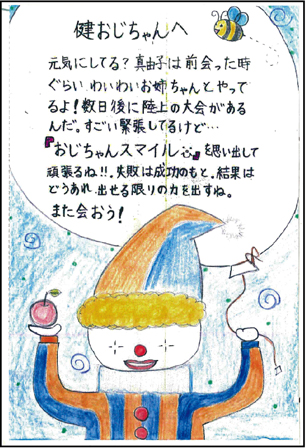 健おじちゃんへ
元気にしてる？真由子は前会った時
ぐらい、わいわいお姉ちゃんとやって
るよ！数日後に陸上の大会がある
んだ。すごい緊張してるけど…
『おじちゃんスマイル』を思い出して
頑張るね!!失敗は成功のもと。結果は
どうあれ、出せる限りの力を出すね。
また会おう！